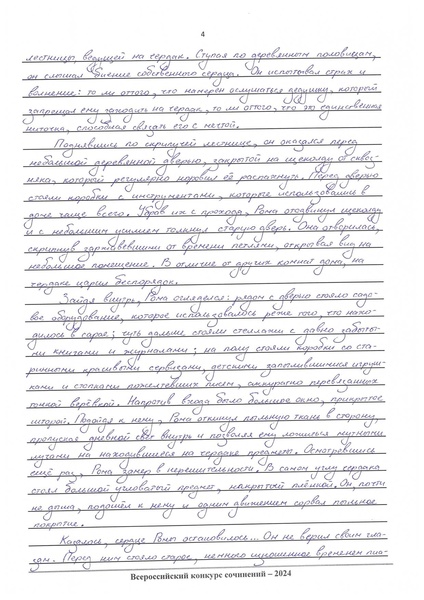 4
лестницы, ведущей на чердак. Ступая по деревянным половицам,
он слышал биение собственного сердца. Он испытывал страх и
волнение: то ли оттого, что намерен ослушаться дедушку, который
запрещал ему заходить на чердак, то ли оттого, что это единственная
ниточка, способная связать его с мечтой.
Поднявшись по скрипучей лестнице, он оказался перед
небольшой деревянной дверью, закрытой на щеколду от сквоз-
няка, который регулярно норовил её распахнуть. Перед дверью
стояли коробки с инструментами, которые использовались в
доме чаще всего. Убрав их с прохода, Рома отодвинул щеколду
и с небольшим усилием толкнул старую дверь. Она отворилась,
скрипнув заржавевшими от времени петлями, открывая вид на
небольшое помещение. В отличие от других комнат дома, на
чердаке царил беспорядок.
Зайдя внутрь, Рома огляделся: рядом с дверью стояло садо-
вое оборудование, которое использовалось реже того, что нахо-
дилось в сарае; чуть дальше стояли стеллажи с давно забыты-
ми книгами и журналами; на полу стояли коробки со ста-
ринными красивыми сервизами, детскими запылившимися игруш-
ками и стопками пожелтевших писем, аккуратно перевязанных
тонкой верёвкой. Напротив входа было большое окно, прикрытое
шторой. Подойдя к нему, Рома откинул пыльную ткань в сторону,
пропуская дневной свет внутрь и позволяя ему ложиться мутными
лучами на находившиеся на чердаке предметы. Осмотревшись
ещё раз, Рома замер в нерешительности. В самом углу чердака
стоял большой угловатый предмет, накрытый плёнкой. Он, почти
не дыша, подошёл к нему и одним движением сорвал пыльное
покрытие.
Казалось, сердце Ромы остановилось... Он не верил своим гла-
зам. Перед ним стояло старое, немного изношенное временем пиа-
Всероссийский конкурс сочинений – 2024